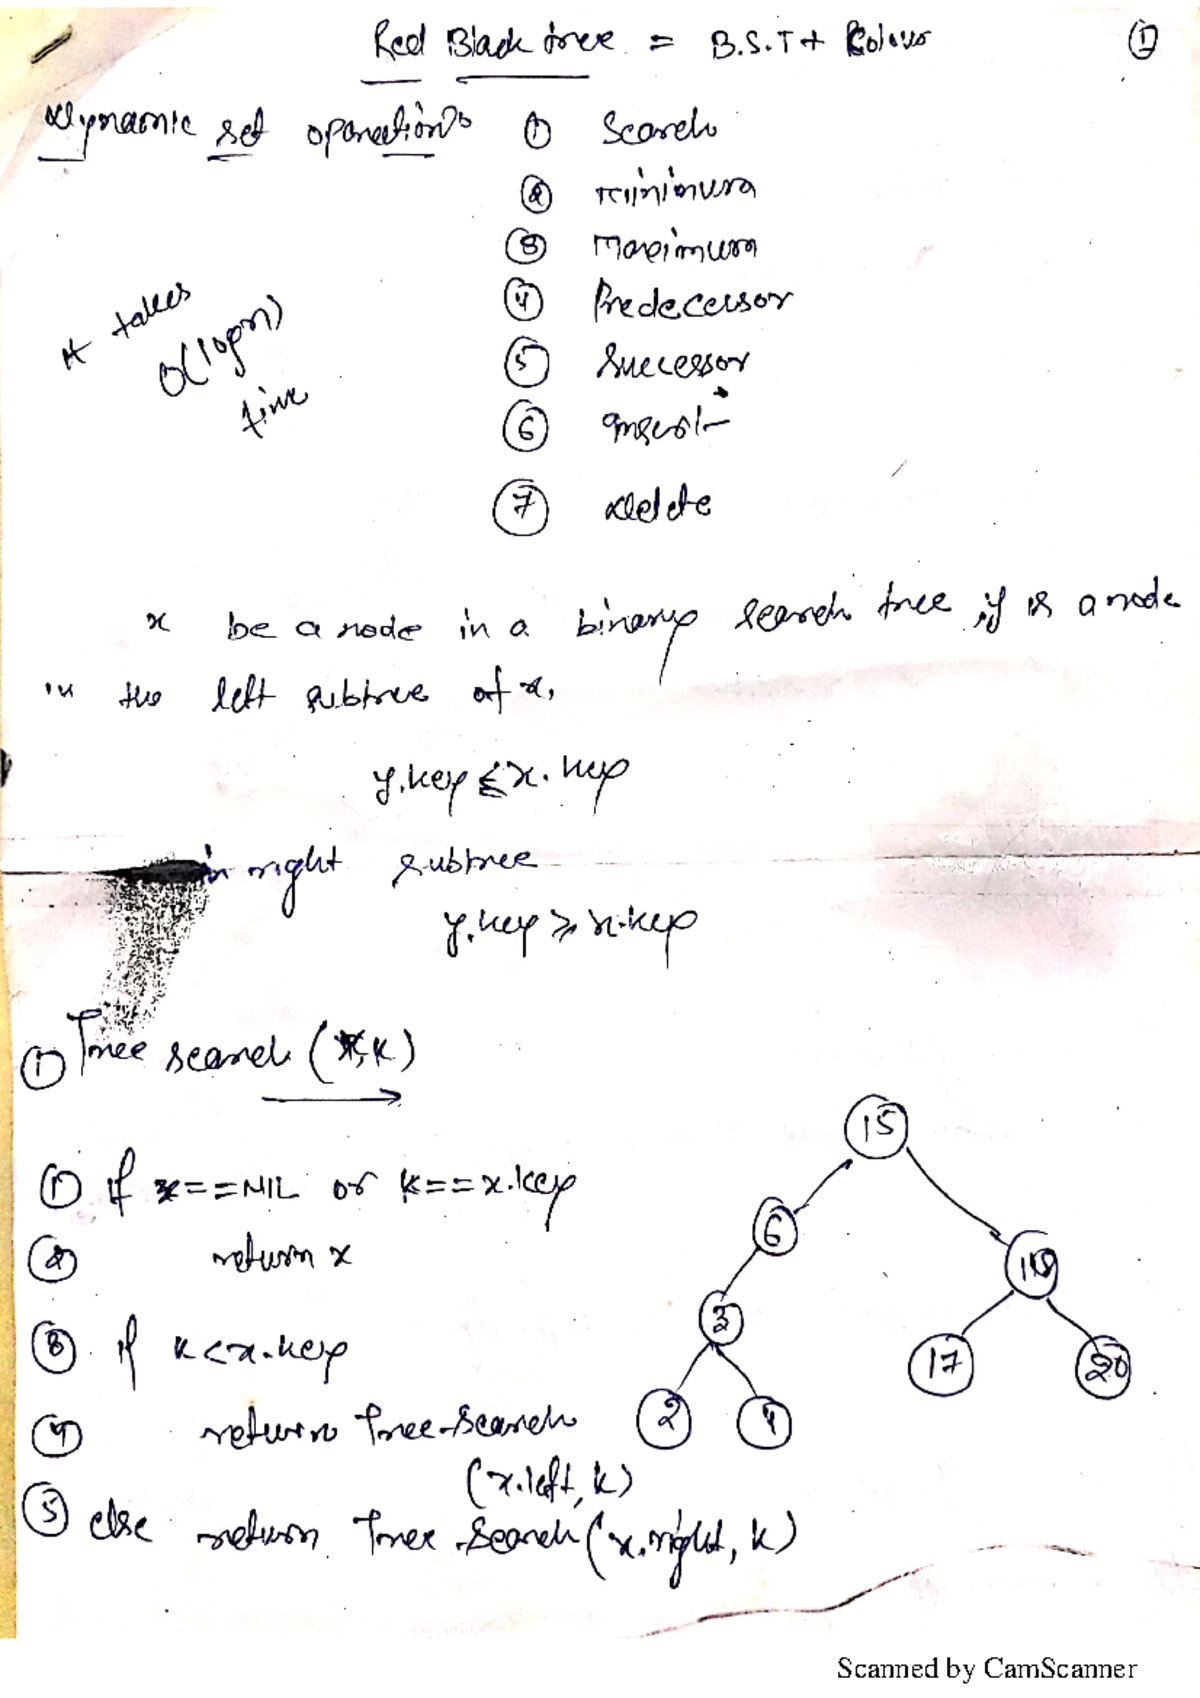 Red Black tree = B.S.T + Colour ①
Dynamic set operations ① Search
② Minimum
③ Maximum
④ Predecessor
⑤ Successor
⑥ Insert
⑦ Delete
It takes
O(logn)
time
x be a node in a binary search tree, y is a node
in the left subtree of x,
y.key ≤ x.key
in right subtree
y.key ≥ x.key
① Tree search (x, k)
① if x==NIL or k==x.key
② return x
③ if k<x.key
④ return Tree-Search
(x.left, k)
⑤ else return Tree-Search (x.right, k)
15
6
3
17
20
2
4
Scanned by CamScanner